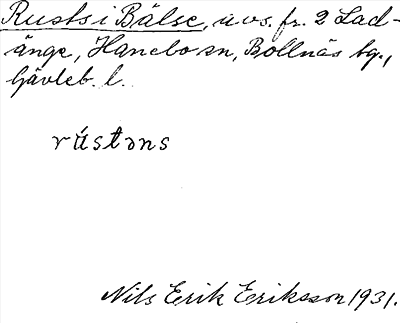 Rusts i Bälse, avs. fr. 2 Lad-
änge, Hanebo sn, Bollnäs tg.,
Gävleb. l.
rústəns
Nils Erik Eriksson 1931.